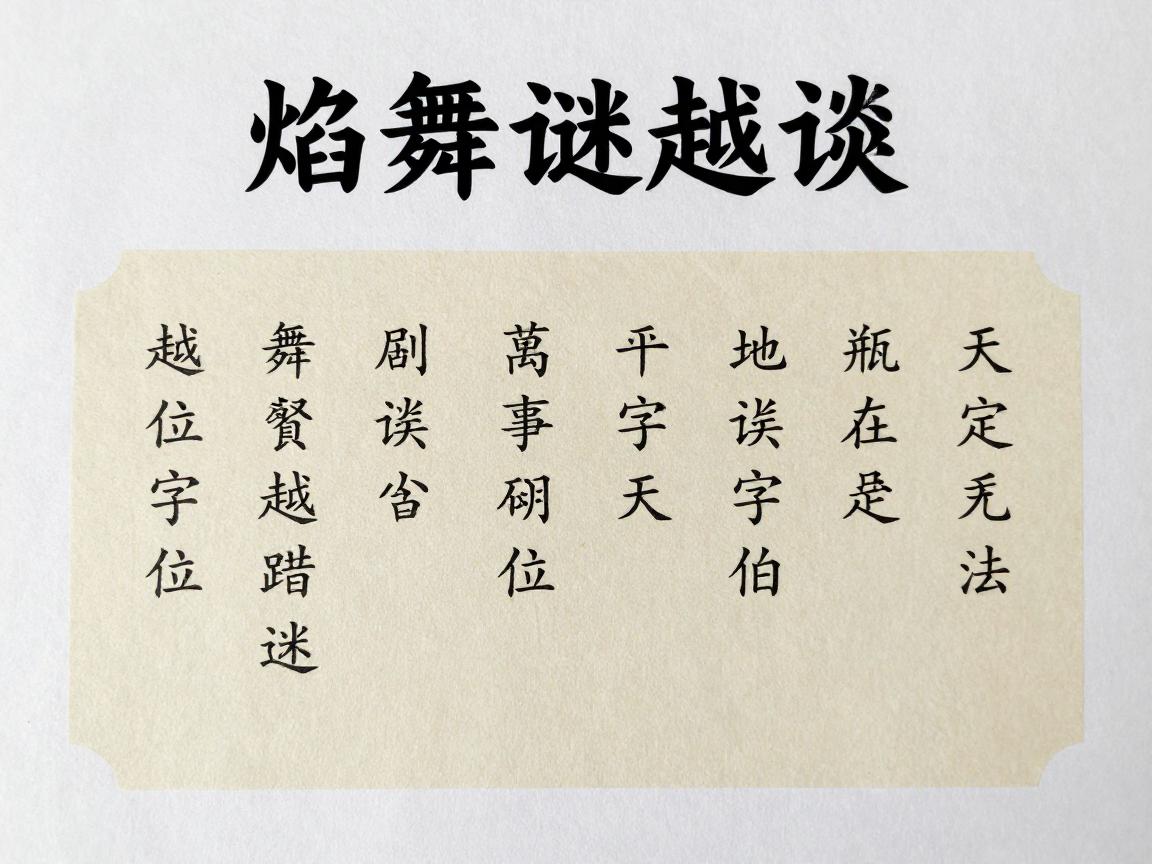 焰舞谜越谈
天定无法
瓶在是
地误字伯
平字天
萬事硼位
剧谈
舞餐越踖迷
越位字位